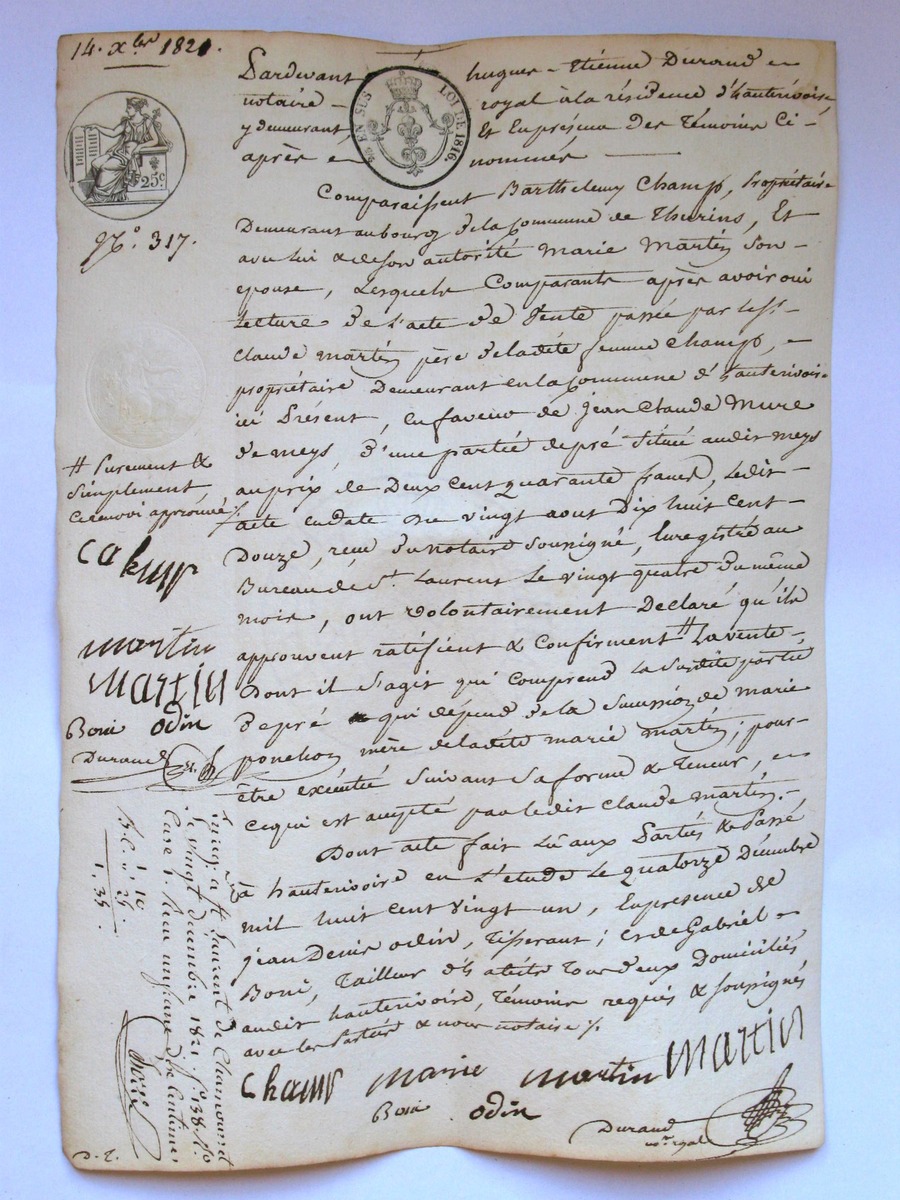 14. Xbre 1821.
25c
EN SUS LOI DE 1816.
No. 317.
Pardevant hugues-Etienne Durand
notaire royal à la résidence d'hauterivoire
y demeurant, Et En présence Des Témoins Ci-
après nommés
Comparaissent Barthelemy Champ, propriétaire
Demeurant au bourg de la Commune de Thurins, Et
avec lui & de son autorité marie martin Son
epouse, Lesquels Comparants après avoir oui
Lecture de L'acte de Vente passée par Le Sr
Claude martin père de ladite femme Champ,
propriétaire Demeurant en la Commune d'hauterivoire
ici Présent, en faveur de jean Claude Mure
de meys, d'une partie de pré Située audit meys
au prix de Deux Cent quarante francs, Ledit
acte en date du vingt aout Dix huit Cent
Douze, reçu du notaire Soussigné, Enregistré au
Bureau de St. Laurent Le vingt quatre du même
mois, ont volontairement Déclaré qu'ils
approuvent ratifient & Confirment # La vente,
Dont il S'agit qui Comprend La Susdite partie
de pré qui dépend de la Succession de marie
ponchon mère de ladite marie martin; pour
être exécutée Suivant Sa forme & Teneur,
Ce qui est accepté par ledit Claude martin.
Dont acte fait Lu aux Parties & Passé
à hauterivoire en L'etude Le quatorze Décembre
mil huit Cent vingt un, En presence de
jean Denis odin, Tisserant; et de Gabriel
Boni, Tailleur d'habits Tous deux Domiciliés
audit hauterivoire, Témoins requis & Soussignés
avec les Parties & nous notaire
Champ marie martin Martin
Boni odin
Durand
not. royal
# Purement &
Simplement
Ce renvoi approuvé
Champ
martin
Martin
Boni odin
Durand
Enregé à St. Laurent de Chamousset
Le vingt decembre 1821. fo. 138. Vo
Case 1. Reçu un franc dix Centimes
1. 10
" 25
1. 35
D. T.